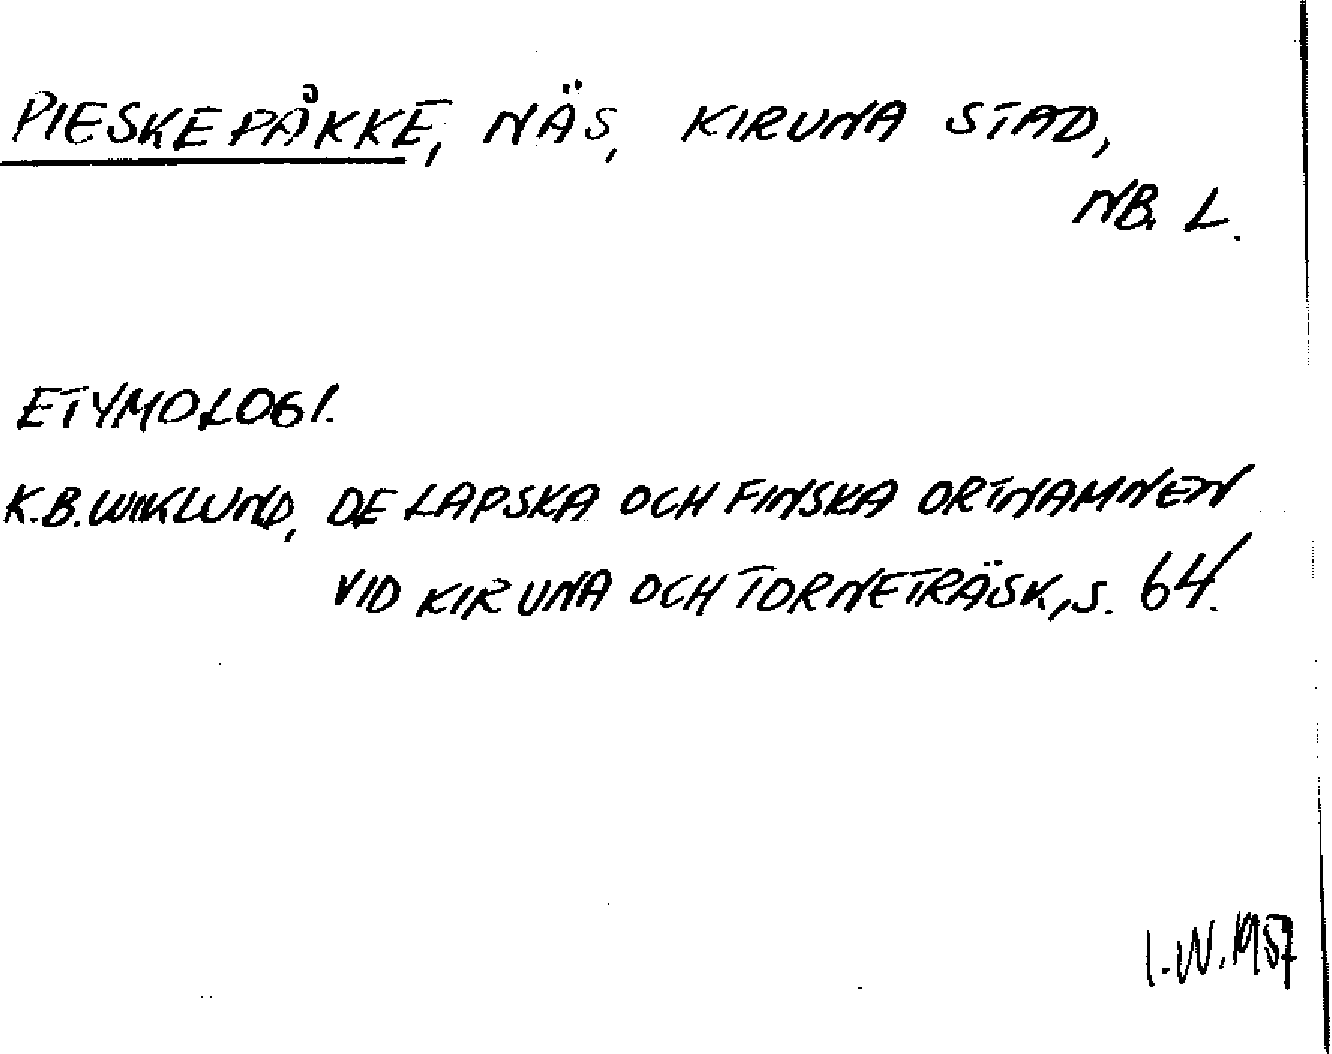 PIESKEPÅKKE, NÄS, KIRUNA STAD,
NB. L.
ETYMOLOGI.
K.B. WIKLUND, DE LAPSKA OCH FINSKA ORTNAMNEN
VID KIRUNA OCH TORNETRÄSK, S. 64.
I.W. 1987